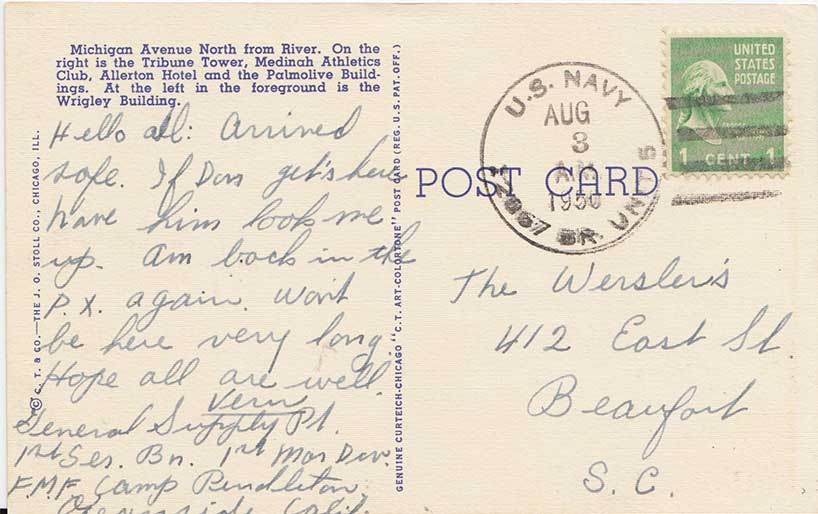 Michigan Avenue North from River. On the
right is the Tribune Tower, Medinah Athletics
Club, Allerton Hotel and the Palmolive Build-
ings. At the left in the foreground is the
Wrigley Building.
Hello all: Arrived
safe. If Don get's here
have him look me
up. Am back in the
P.X. again. Won't
be here very long.
Hope all are well.
Vern
General Supply Pt.
1st Ser. Bn. 1st Mar Div.
F.M.F. Camp Pendleton
Oceanside Calif.
© C. T. & CO.—THE J. O. STOLL CO., CHICAGO, ILL.
GENUINE CURTEICH-CHICAGO "C.T. ART-COLORTONE" POST CARD (REG. U.S. PAT. OFF.)
POST CARD
U.S. NAVY
AUG
3
A.M.
1950
BR. UNIT
UNITED
STATES
POSTAGE
1 CENT 1
The Wersler's
412 East St
Beaufort
S. C.